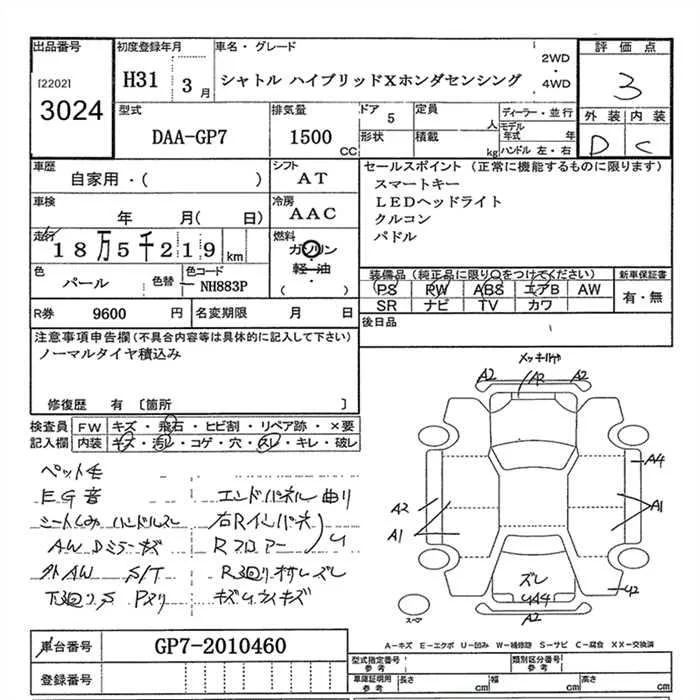 出品番号 初度登録年月 車名・グレード 評価点
[2202] 3024
H31 3月 シャトル ハイブリッドXホンダセンシング 2WD・4WD
3
型式 DAA-GP7 排気量 1500 CC ドア 5 定員 人 ディーラー・並行
形状 積載 kg モデル年式 年 ハンドル 左・右
外装 内装
D C
車歴 自家用・( ) シフト AT
車検 年 月( 日) 冷房 AAC
走行 18万5千219km 燃料 ガソリン・軽・油・( )
色 パール 色替 カラーコード NH883P
R券 9600 円 名変期限 月 日
セールスポイント (正常に機能するものに限ります)
スマートキー
LEDヘッドライト
クルコン
パドル
装備品(純正品に限り○をつけてください) 新車保証書
PS PW ABS エアB AW 有・無
SR ナビ TV カワ
後日品
注意事項申告欄(不具合内容等は具体的に記入して下さい)
ノーマルタイヤ積込み
修復歴 有 〔箇所 〕
検査員記入欄 FW キズ・飛石・ヒビ割・リペア跡・×要
内装 キズ・汚レ・コゲ・穴・スレ・キレ・破レ
ペット毛
EG音 エンドパネル曲り
シートしみ ハンドルスレ 右Rインパネ
AW Dミラーキズ Rフロアー
外AW S/T R廻り
下廻りS Pヌリ
A2 A2 A2
A4
A2
A1 A1
ズレ
U2
A2
スペア
A-キズ E-エクボ U-凹み W-補修跡 S-サビ C-腐食 XX-交換済
車台番号 GP7-2010460
登録番号
型式指定番号 参考 類別区分番号 参考
車庫証明用 参考 長さ cm 幅 cm 高さ cm